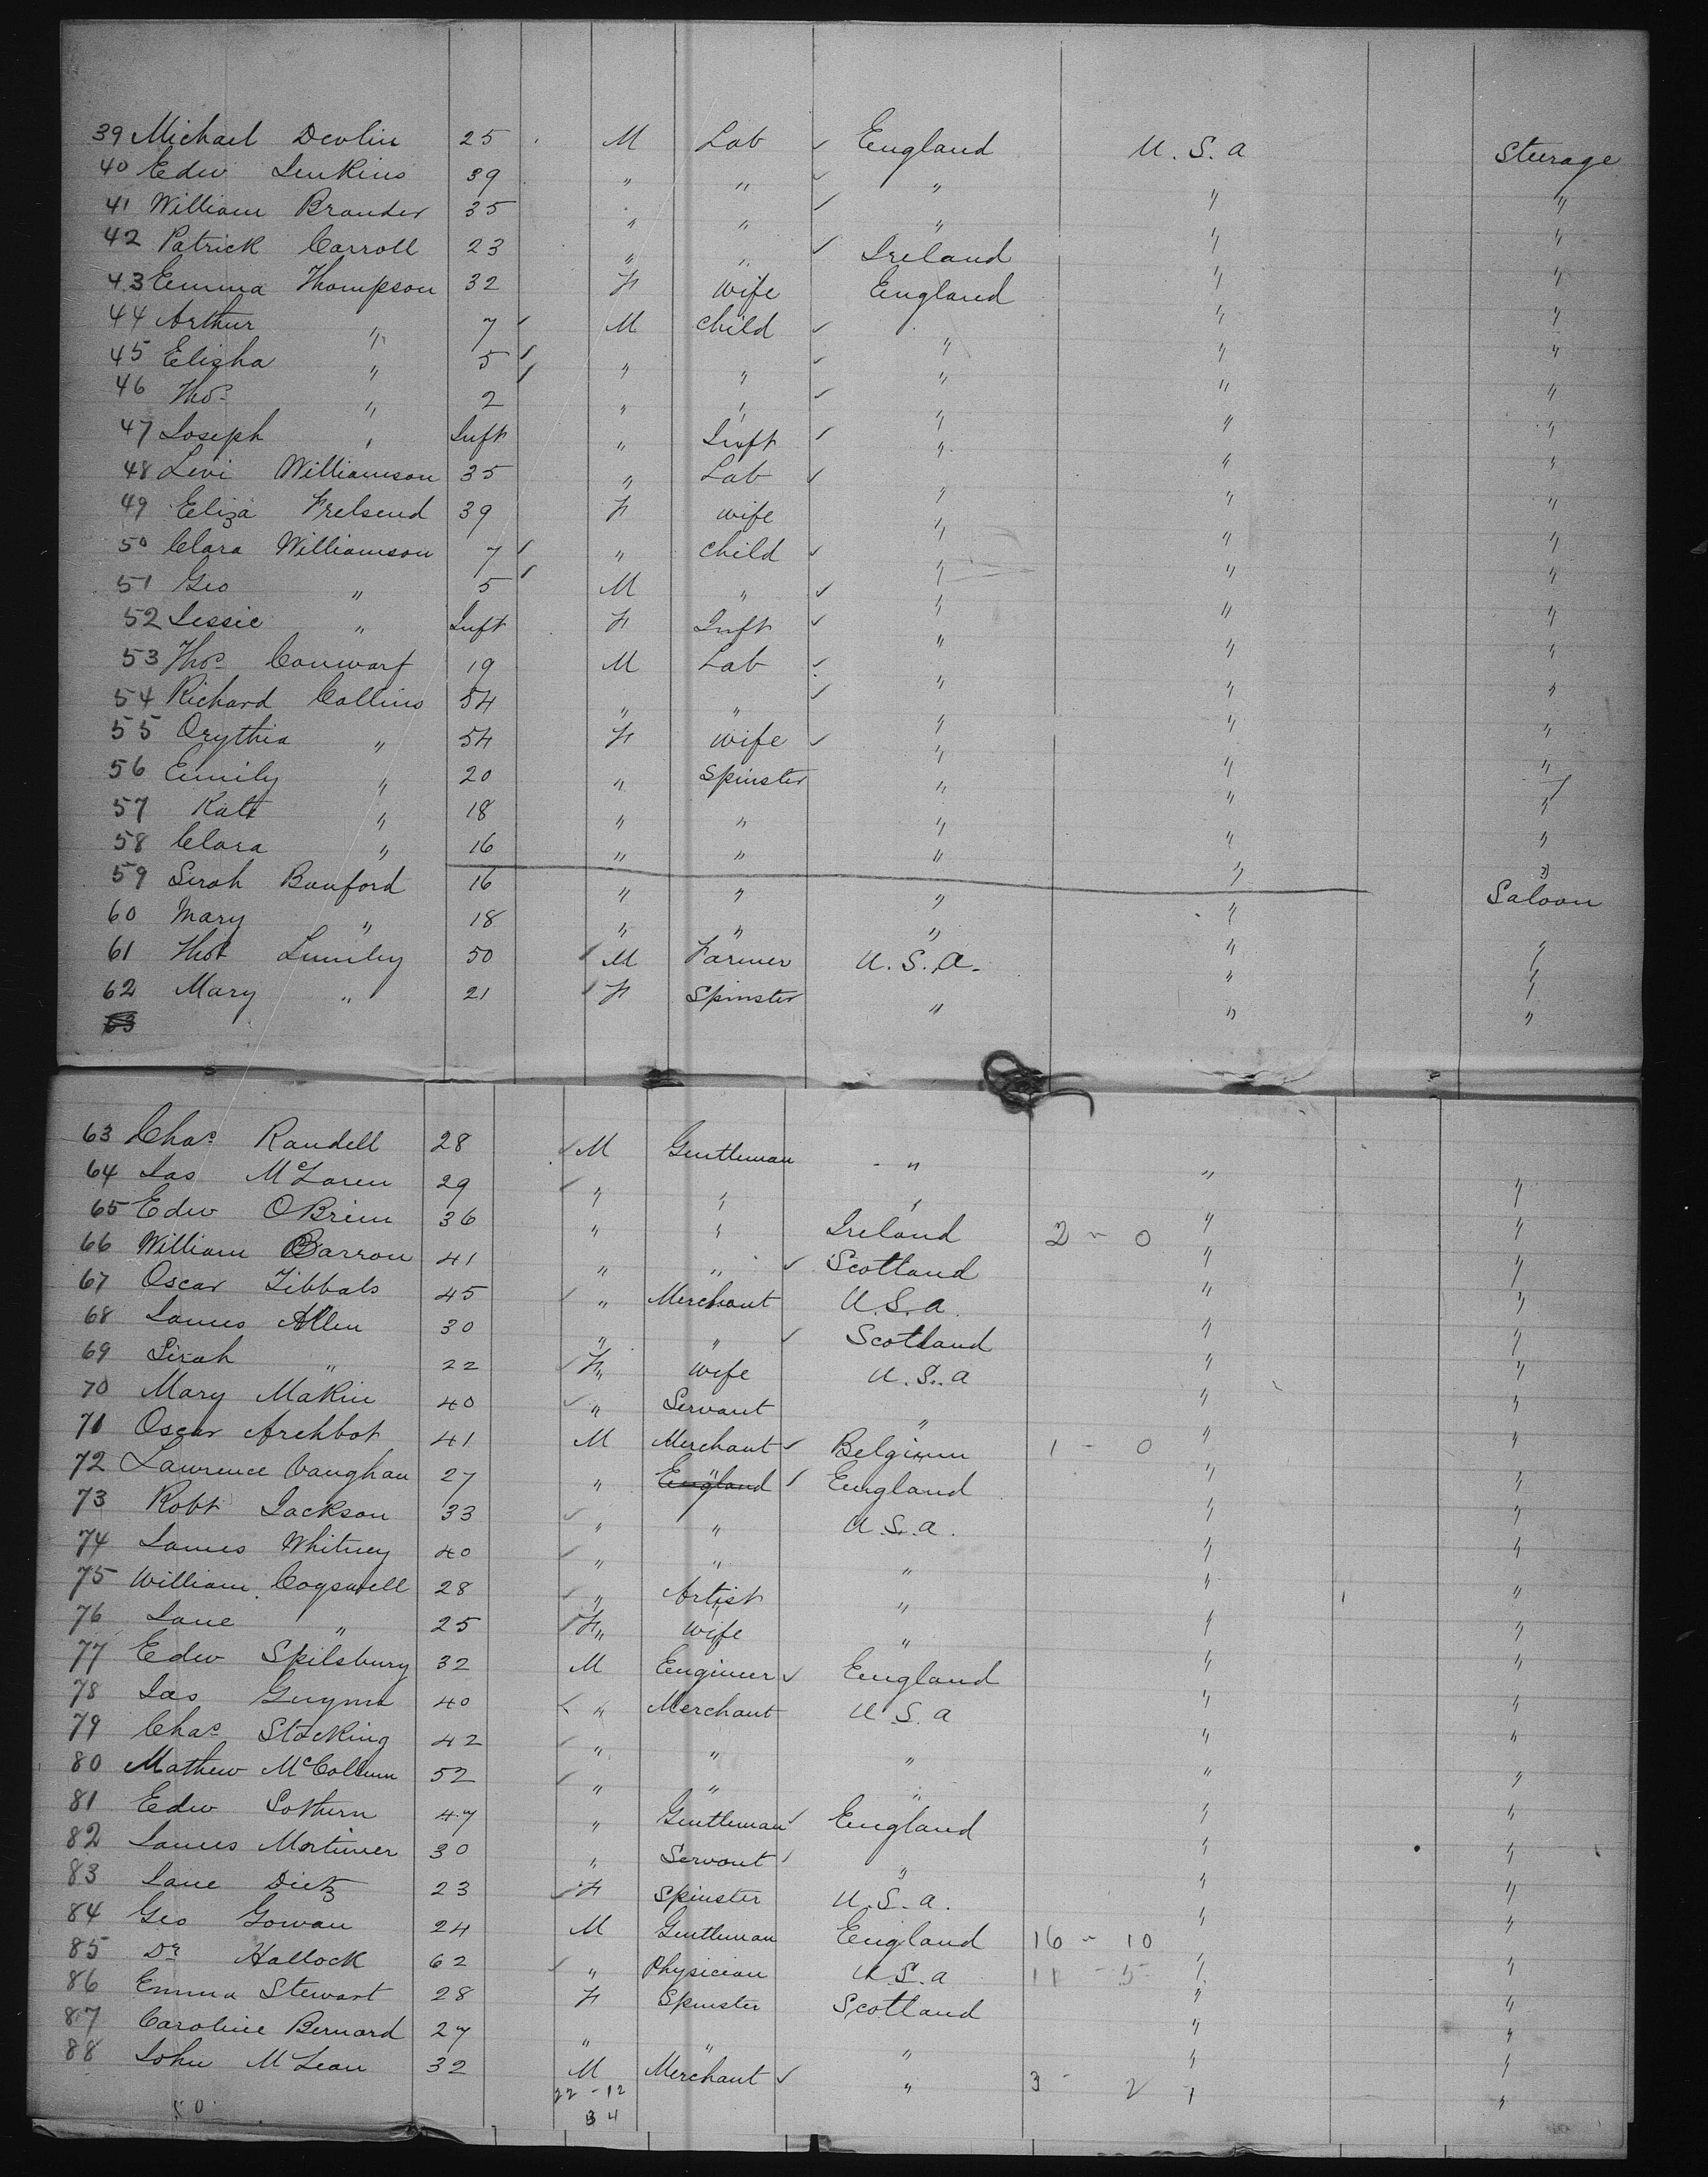 39 Michael Devlin 25 M Lab England U.S.a Steerage
40 Edw Jenkins 39 " " " " "
41 William Brander 35 " " " " "
42 Patrick Carroll 23 " " Ireland " "
43 Emma Thompson 32 F wife England " "
44 Arthur " 7 M child " " "
45 Elisha " 5 " " " " "
46 Thos " 2 " " " " "
47 Joseph " Inft " Inft " " "
48 Levi Williamson 35 " Lab " " "
49 Eliza 39 F wife " " "
50 Clara Williamson 7 " child " " "
51 Geo " 5 M " " " "
52 Jessie " Inft F Inft " " "
53 Thos 19 M Lab " " "
54 Richard Collins 54 " " " " "
55 Orythia " 54 F wife " " "
56 Emily " 20 " Spinster " " "
57 Kate " 18 " " " " "
58 Clara " 16 " " " " "
59 Sirah Banford 16 " " " " Saloon
60 Mary " 18 " " " " "
61 Thos Lumley 50 M Farmer U.S.A. " "
62 Mary " 21 F Spinster " " "
63
63 Chas Randell 28 M Gentleman " " "
64 Jas McLaren 29 " " " " "
65 Edw OBrien 36 " " Ireland 2 - 0 " "
66 William Barron 41 " " Scotland " "
67 Oscar Tibbals 45 " Merchant U.S.a. " "
68 James Allen 30 " " Scotland " "
69 Sirah " 22 F " wife U.S.a " "
70 Mary Makin 40 " Servant " " "
71 Oscar Archbot 41 M Merchant Belgium 1 - 0 " "
72 Lawrence Vaughan 27 " England England " "
73 Robt Jackson 33 " " U.S.a. " "
74 James Whitney 40 " " " " "
75 William Cogswell 28 " Artist " " "
76 Jane " 25 F " wife " " "
77 Edw Spilsbury 32 M Engineer England " "
78 Jas 40 " Merchant U S. a " "
79 Chas Stocking 42 " " " " "
80 Mathew McCollum 52 " " " " "
81 Edw Sothern 47 " Gentleman England " "
82 James Mortimer 30 " Servant " " "
83 Jane Dietz 23 F Spinster U.S.a. " "
84 Geo Gowan 24 M Gentleman England 16 - 10 "
85 Dr Hallock 62 " Physician U.S.a 11 - 5 " "
86 Emma Stewart 28 F Spinster Scotland " "
87 Caroline Bernard 27 " " " " "
88 John McLean 32 M Merchant " 3 - 2 " "
22 - 12
34
50